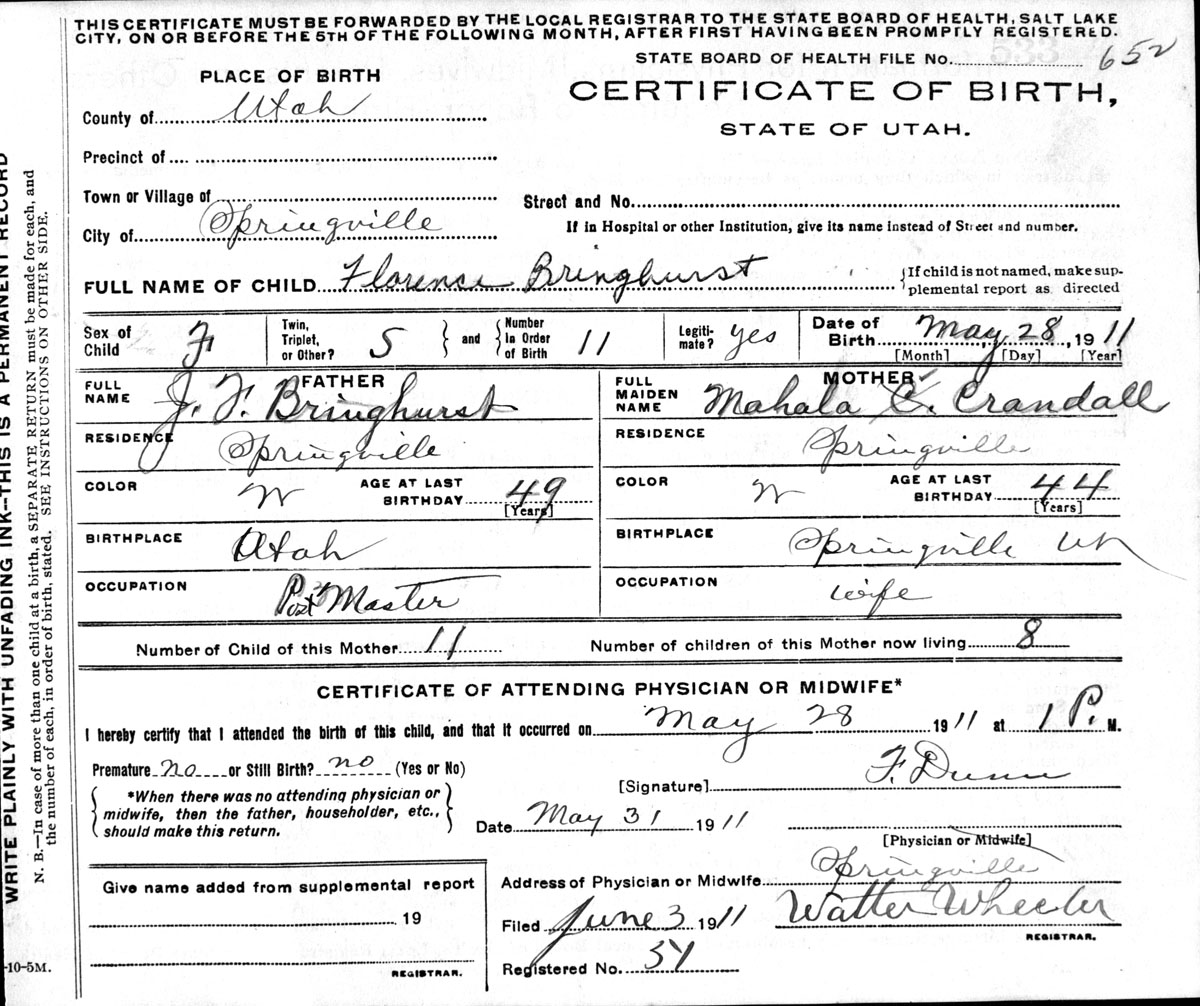 THIS CERTIFICATE MUST BE FORWARDED BY THE LOCAL REGISTRAR TO THE STATE BOARD OF HEALTH, SALT LAKE
CITY, ON OR BEFORE THE 5TH OF THE FOLLOWING MONTH, AFTER FIRST HAVING BEEN PROMPTLY REGISTERED.
STATE BOARD OF HEALTH FILE No. 652
PLACE OF BIRTH
CERTIFICATE OF BIRTH,
STATE OF UTAH.
County of Utah
Precinct of
Town or Village of
Street and No.
City of Springville
If in Hospital or other Institution, give its name instead of Street and number.
FULL NAME OF CHILD Florence Bringhurst
{If child is not named, make sup-
plemental report as directed
Sex of Child F
Twin, Triplet, or Other? S } and { Number In Order of Birth 11
Legiti-mate? yes
Date of Birth May 28, 1911
[Month] [Day] [Year]
FATHER
FULL NAME J. F. Bringhurst
RESIDENCE Springville
COLOR W AGE AT LAST BIRTHDAY 49
[Years]
BIRTHPLACE Utah
OCCUPATION Post Master
MOTHER
FULL MAIDEN NAME Mahala C. Crandall
RESIDENCE Springville
COLOR W AGE AT LAST BIRTHDAY 44
[Years]
BIRTHPLACE Springville Ut
OCCUPATION wife
Number of Child of this Mother 11 Number of children of this Mother now living 8
CERTIFICATE OF ATTENDING PHYSICIAN OR MIDWIFE*
I hereby certify that I attended the birth of this child, and that it occurred on May 28 1911 at 1 P. M.
Premature no or Still Birth? no (Yes or No)
{ *When there was no attending physician or
midwife, then the father, householder, etc.,
should make this return. }
[Signature] F. Dunn
Date May 31 1911
[Physician or Midwife]
Give name added from supplemental report
19
REGISTRAR.
Address of Physician or Midwife Springville
Filed June 3 1911 Walter Wheeler
REGISTRAR.
Registered No. 54
-10-5M.
WRITE PLAINLY WITH UNFADING INK—THIS IS A PERMANENT RECORD
N. B.—In case of more than one child at a birth, a SEPARATE RETURN must be made for each, and
the number of each, in order of birth, stated. SEE INSTRUCTIONS ON OTHER SIDE.